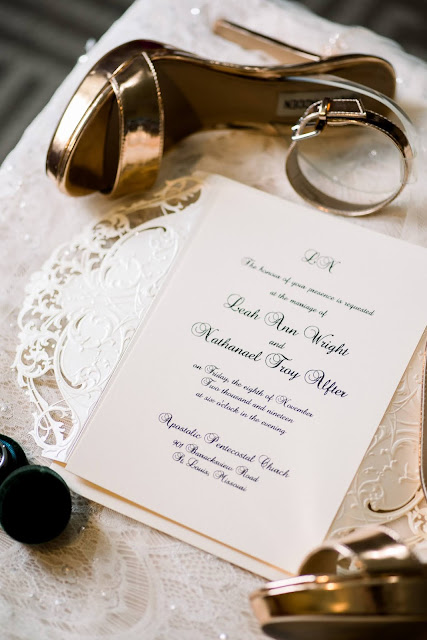 DDEN
LN
The honour of your presence is requested
at the marriage of
Leah Ann Wright
and
Nathanael Troy Alfter
on Friday, the eighth of November
Two thousand and nineteen
at six o'clock in the evening
Apostolic Pentecostal Church
901 Barracksview Road
St Louis, Missouri